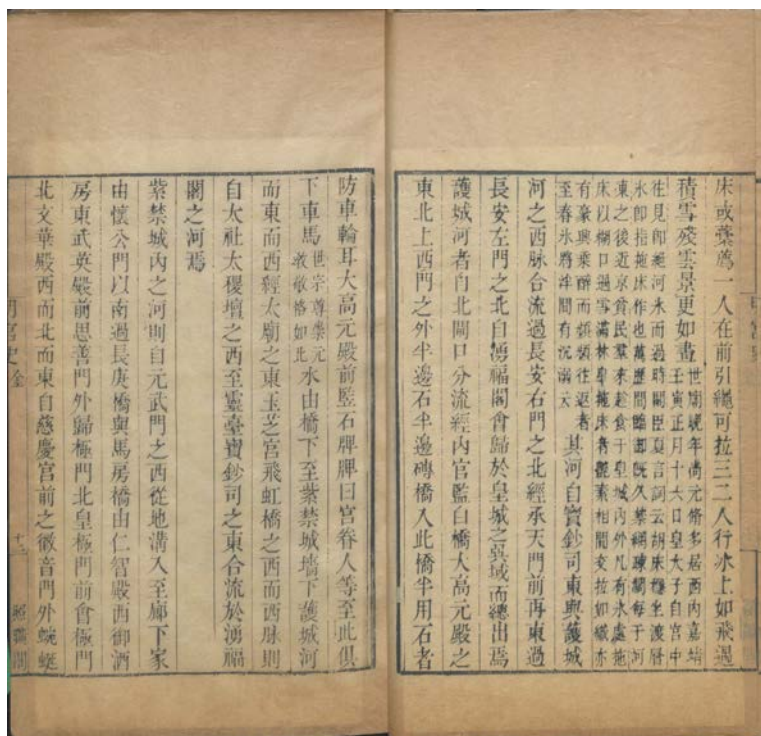 床或藁薦一人在前引繩可拉三二人行冰上如飛過
積雪殘雲景更如畫
世廟晚年尚元脩多居西內嘉靖
壬寅正月十六日皇太子自宮中
往見即絕河冰而過時閣臣夏言詞云胡床穩坐渡層
冰即指拖床作也萬歷間臨御既久禁網疎闊每于河
凍之後近京貧民羣來趁食于皇城內外凡有冰處拖
床以糊口遇雪滿林皐拖床者艷素相間交拉如織亦
有豪興乘醉而頻頻往返者
至春冰將泮間有沉溺云
其河自寶鈔司東與護城
河之西脉合流過長安右門之北經承天門前再東過
長安左門之北自湧福閣會歸於皇城之巽域而總出焉
護城河者自北閘口分流經內官監白橋大高元殿之
東北上西門之外半邊石半邊磚橋入此橋半用石者
防車輪耳大高元殿前監石牌牌曰宮眷人等至此俱
下車馬
世宗尊崇元
教敬恪如此
水由橋下至紫禁城墻下護城河
而東而西經太廟之東玉芝宮飛虹橋之西而西脉則
自大社太稷壇之西至靈臺寶鈔司之東合流於湧福
閣之河焉
紫禁城內之河則自元武門之西從地溝入至廊下家
由懷公門以南過長庚橋與馬房橋由仁智殿西御酒
房東武英殿前思善門外歸極門北皇極門前會極門
北文華殿西而北而東自慈慶宮前之徽音門外蜿蜒
明宮史 金
十三
照曠閣